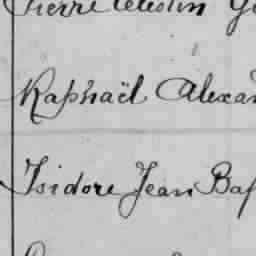 Pierre Célestin
Raphaël Alexan
Isidore Jean Bap